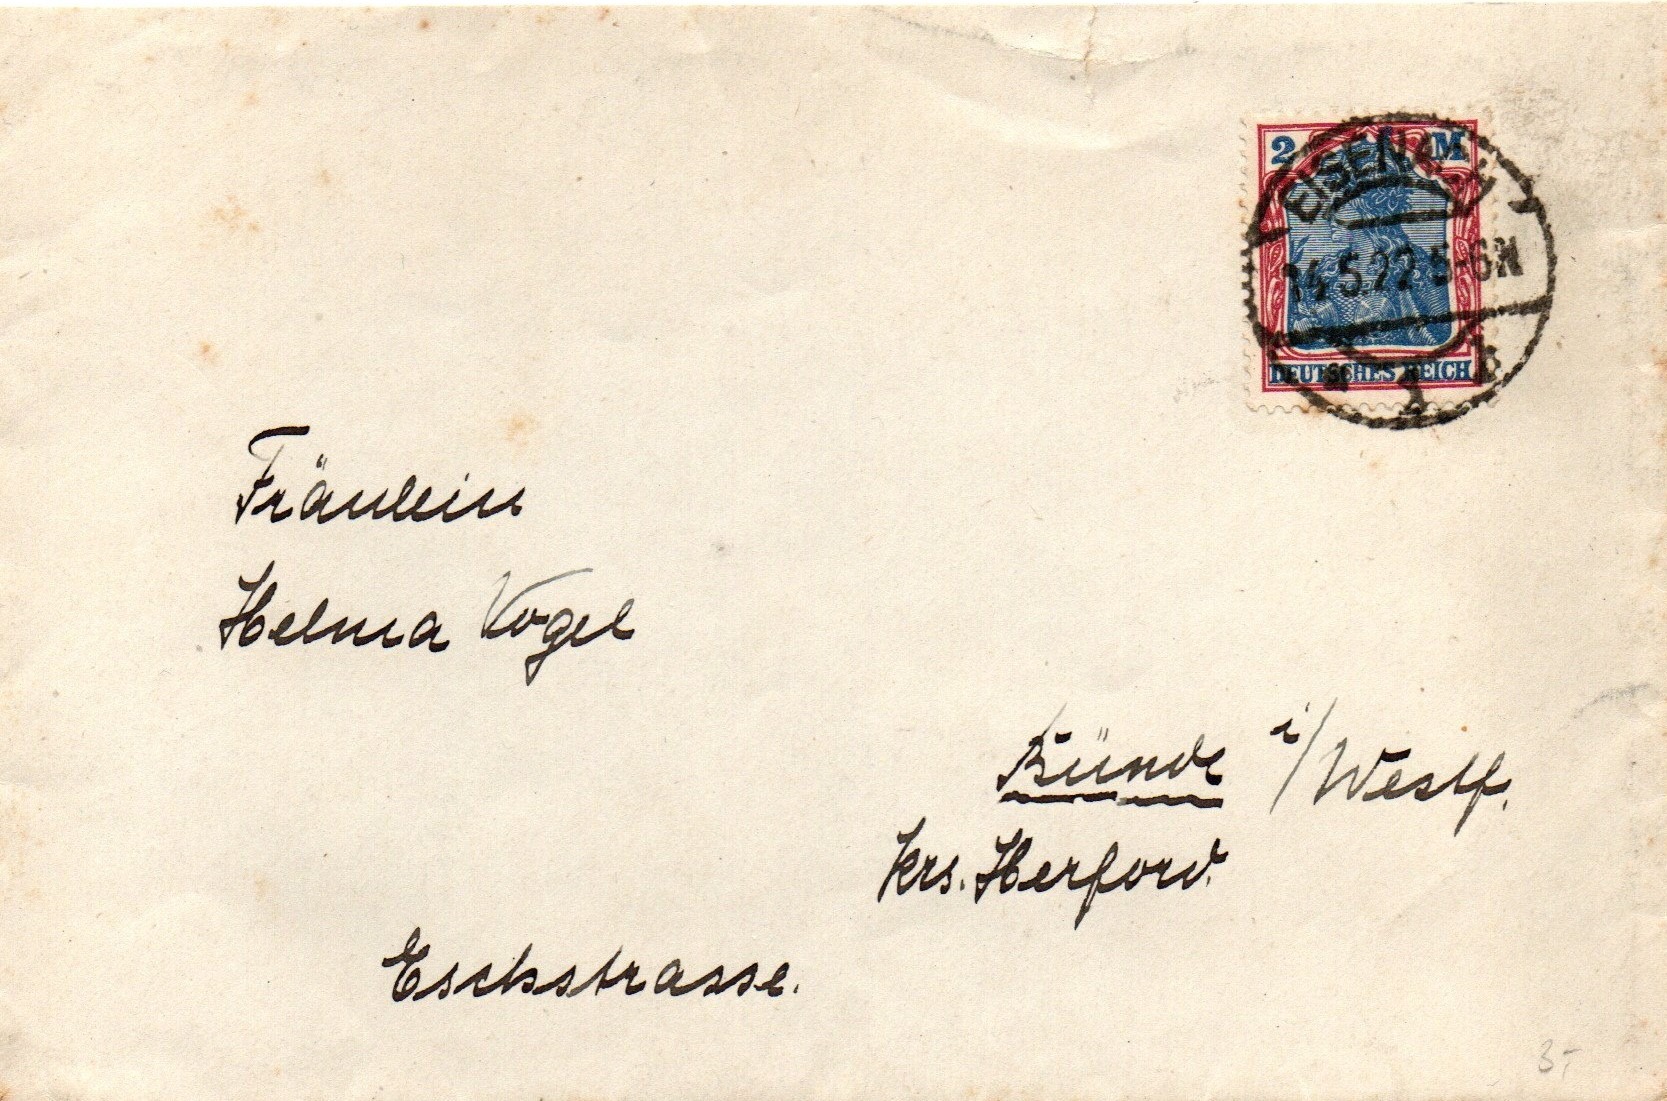 2 M
EISENACH
14.5.22 5-6N
* 1 b
DEUTSCHES REICH
Fräulein
Helma Vogel
Bünde i/Westf.
Krs. Herford.
Eschstrasse.
3,-